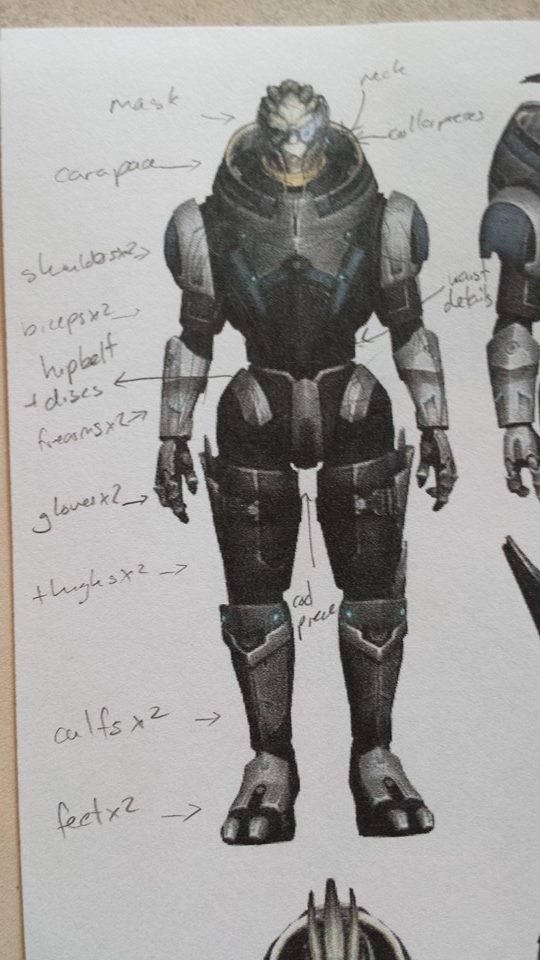 mask
neck
collar pieces
carapace
shouldersx2
waist
details
bicepsx2
hipbelt
+ discs
firearmsx2
glovesx2
thighsx2
cod
piece
calfs x2
feetx2